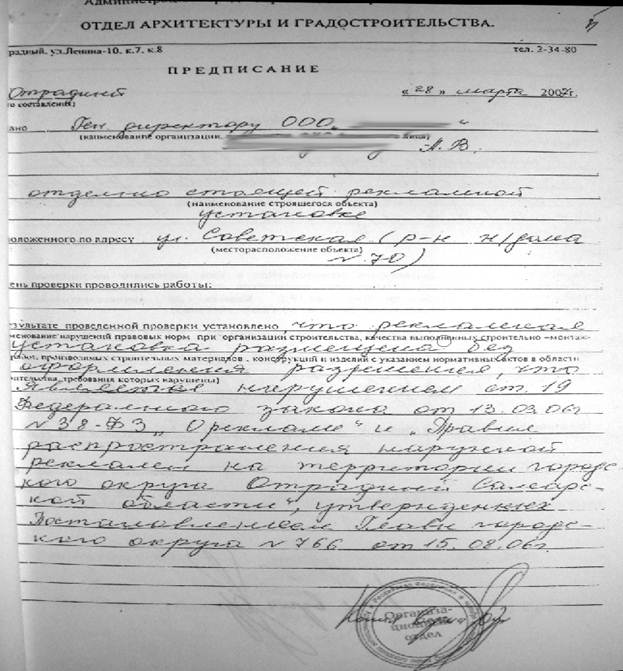 ОТДЕЛ АРХИТЕКТУРЫ И ГРАДОСТРОИТЕЛЬСТВА.
радный, ул.Ленина-10, к.7, к.8 тел. 2-34-80
ПРЕДПИСАНИЕ
Отрадный «28» марта 2007г.
о составления)
ано Ген. директору ООО "
(наименование организации, лица)
А.В.
отдельно стоящей рекламной
(наименование строящегося объекта)
установке
положенного по адресу ул. Советская (р-н н/дома
(месторасположение объекта)
N 70)
ень проверки проводились работы:
результате проведенной проверки установлено, что рекламная
менование нарушений правовых норм при организации строительства, качества выполнянных строительно –монтаж-
установка размещена без
работ, производимых строительных материалов , конструкций и изделий с указанием нормативных актов в области
оформления разрешения, что
ительства, требования которых нарушены)
является нарушением ст. 19
Федерального закона от 13.03.06г.
N 38-ФЗ „О рекламе" и „Правил
распространения наружной
рекламы на территории городс-
кого округа Отрадный Самарс-
кой области", утвержденных
Постановлением Главы городс-
кого округа N 766 от 15.08.06г.
Организа-
ционный
отдел